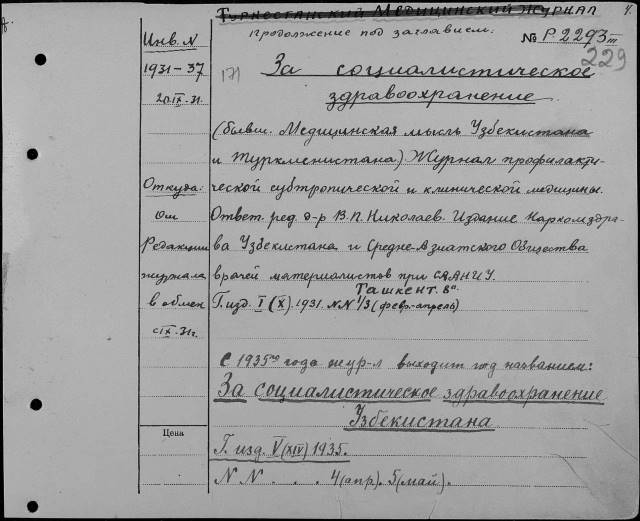 Туркестанский Медицинский Журнал
Продолжение под заглавием:
№ Р-2293 III
229
171
За социалистическое
здравоохранение
(бывш. Медицинская мысль Узбекистана
и Туркменистана) Журнал профилакти-
ческой субтропической и клинической медицины.
Ответ. ред. д-р В.П. Николаев. Издание Наркомздра-
ва Узбекистана и Средне-Азиатского Общества
врачей материалистов при САНИУ.
Ташкент. 8°.
Г. изд. I (X). 1931. NN 1/3 (февр-апрель)
С 1935го года жур-л выходит под названием:
За социалистическое здравоохранение
Узбекистана
Г. изд. V (XIV) 1935.
N N . . . 4 (апр). 5 (май).
Инв. N
1931-37
20.IX.31.
Откуда:
От
Редакции
журнала
в обмен
с IX.31г.
Цена